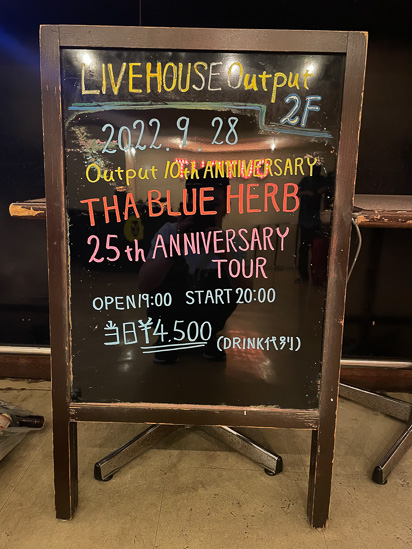 LIVEHOUSE Output
2F
2022. 9. 28
Output 10th ANNIVERSARY
THA BLUE HERB
25th ANNIVERSARY
TOUR
OPEN19:00 START20:00
当日¥4,500 (DRINK代別)